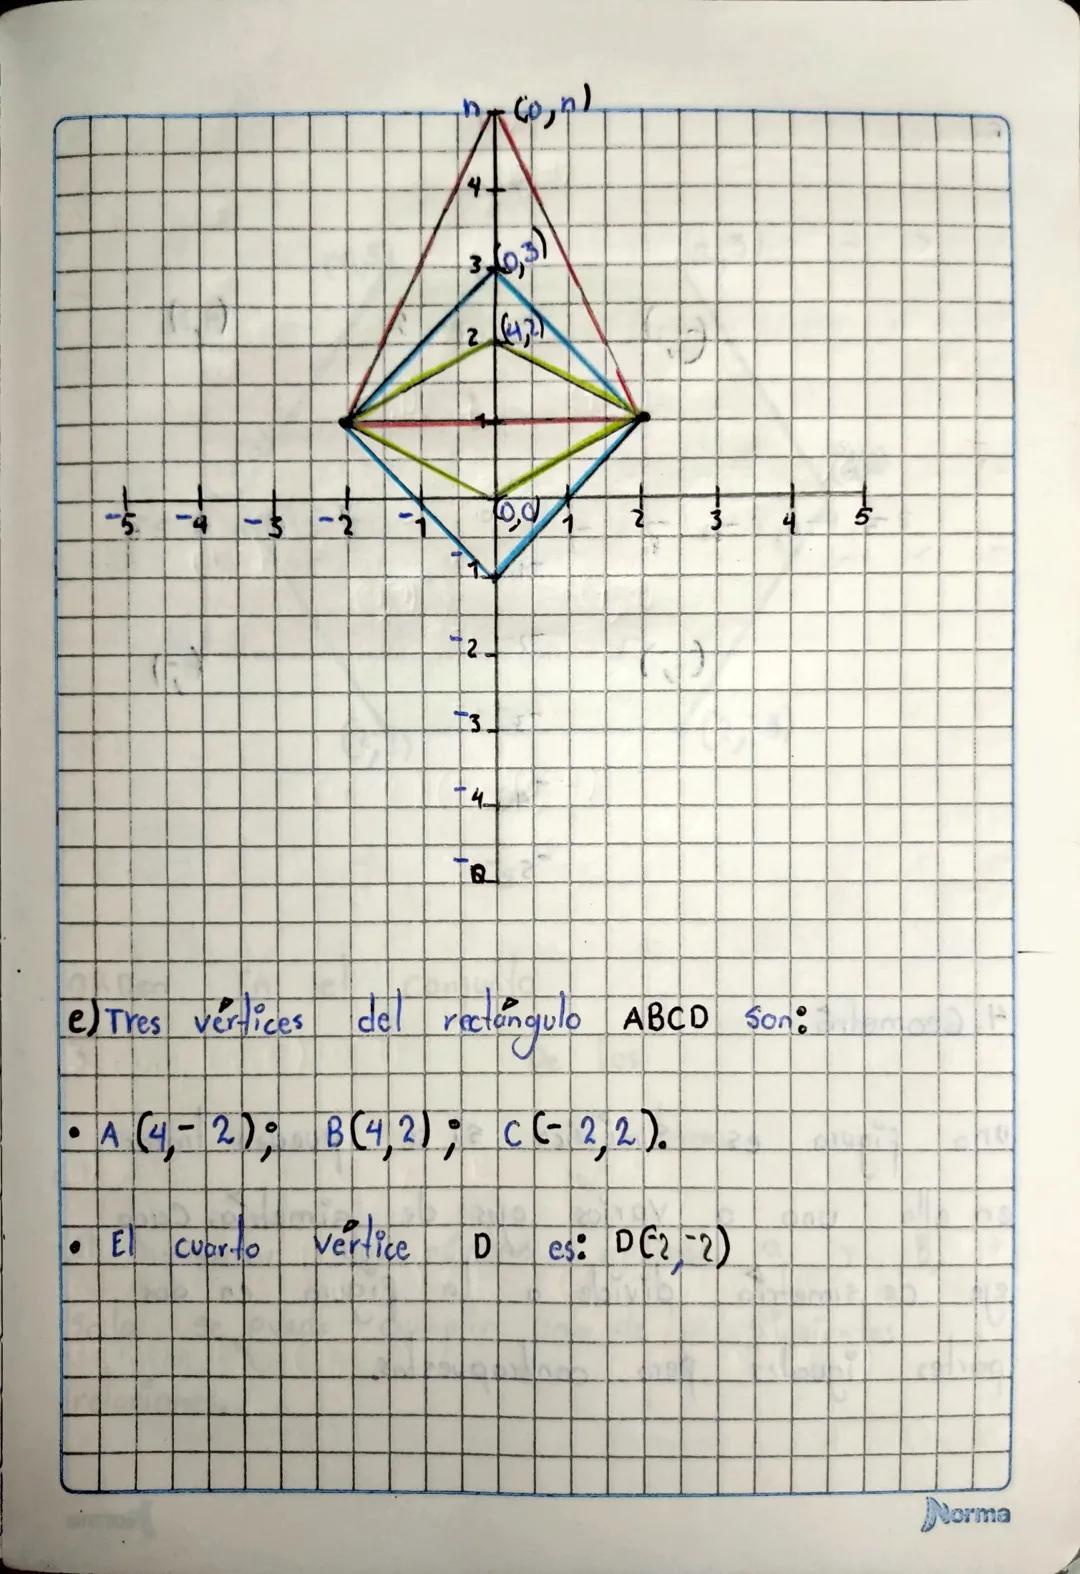 n (0,n)
4
3 (0,3)
2 (4,2)
1
-5 -4 -3 -2 -1 (0,0) 1 2 3 4 5
-1
-2
-3
-4
e) Tres vértices del rectángulo ABCD son:
• A (4,- 2); B(4,2); C (- 2,2).
• El cuarto vértice D es: D(-2,-2)
Norma